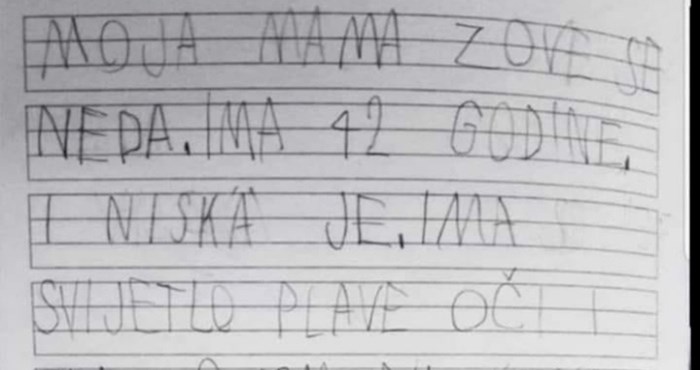 MOJA MAMA ZOVE SE
NEDA. IMA 42 GODINE.
I NISKA JE. IMA
SVIJETLO PLAVE OČI I